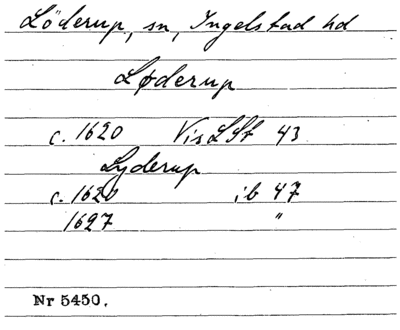 Löderup, sn, Ingelstad hd
Løderup
c. 1620 VisLSt 43
Lyderup
c. 1620 ib 47
1627 "
Nr 5450.